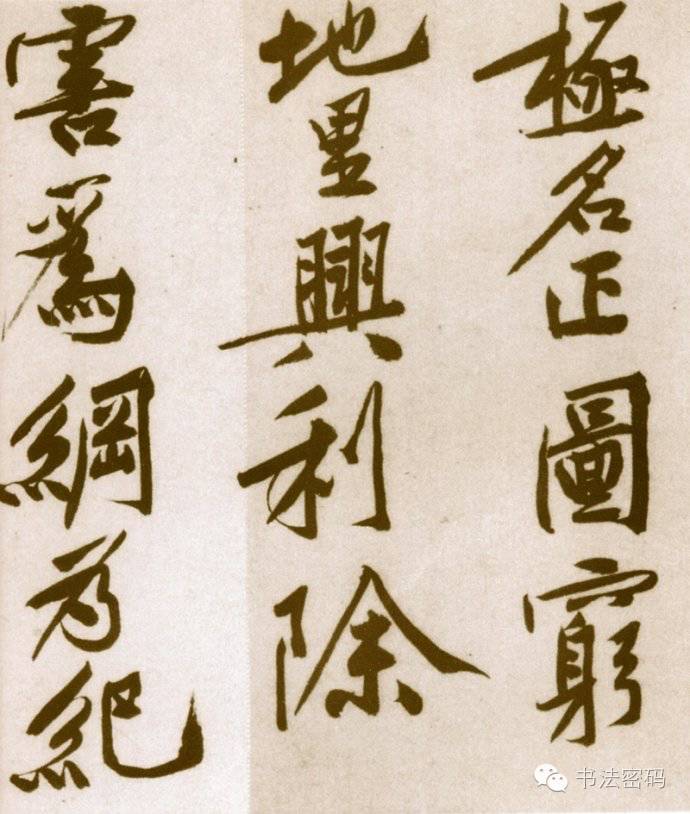 極名正圖窮
地里興利除
害爲綱為紀
书法密码